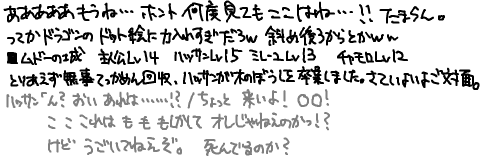 ああああああもうね… ホント何度見てもここはね…!! たまらん。
ってかドラゴンのドット絵に力入れすぎだろw 斜め後ろからとかww
■ムドーの城 主人公Lv14 ハッサンLv15 ミレーユLv13 チャモロLv12
とりあえず無事てっかめん回収、ハッサンが木のぼうしを卒業しました。さていよいよご対面。
ハッサン「ん?おい あれは……!?/ちょっと 来いよ!○○!
ここ これは も も もしかして オレじゃねえのかっ!?
けど うごいてねえぞ。 死んでるのか?